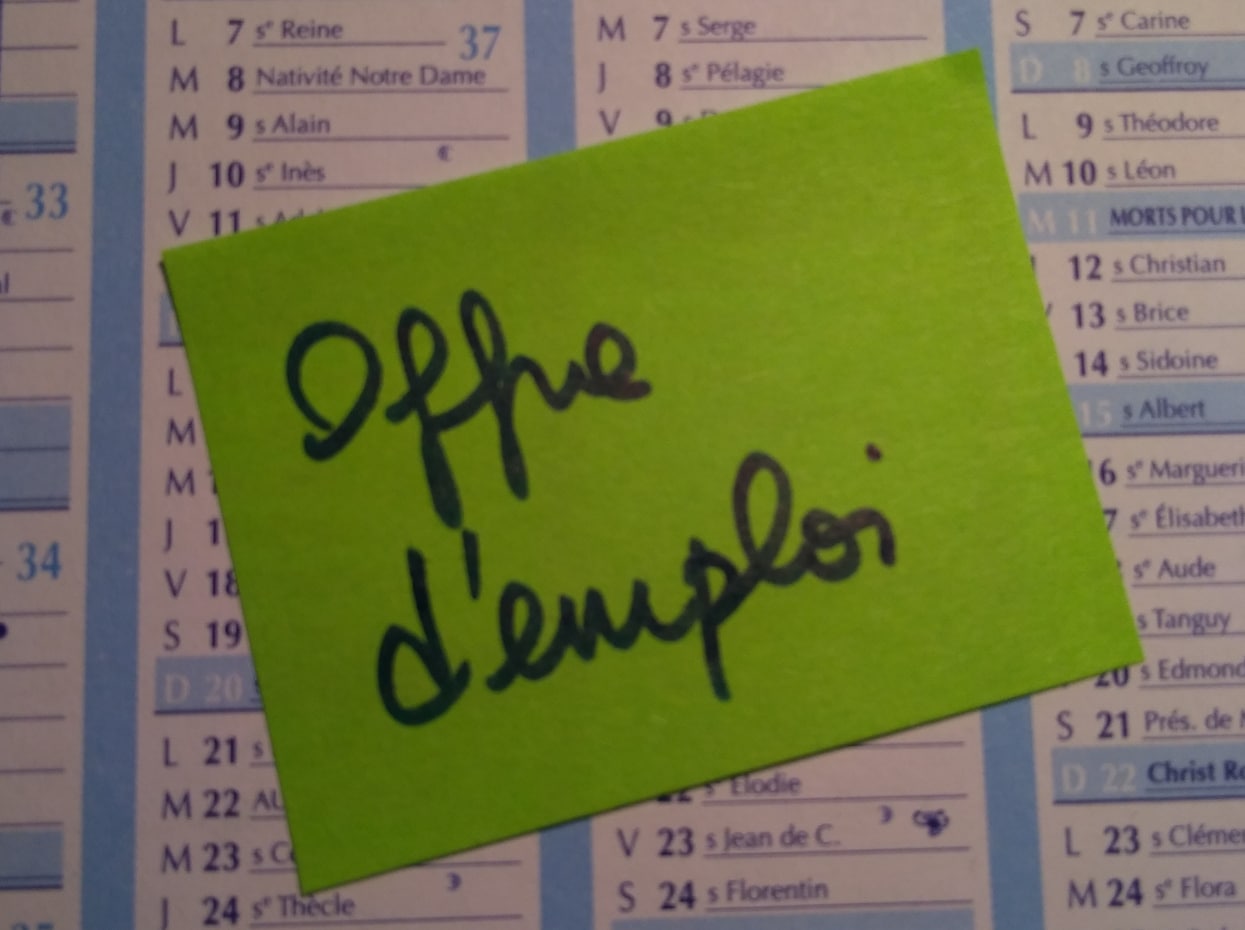 L 7 sᵉ Reine 37
M 8 Nativité Notre Dame
M 9 s Alain
J 10 sᵉ Inès
V 11
L
M
M
J
V 18
S 19
D 20
L 21 s
M 22
M 23 s
J 24 sᵉ Thècle
33
34
M 7 s Serge
J 8 sᵉ Pélagie
V 9
Offre
d'emploi
22 sᵉ Elodie
V 23 s Jean de C.
S 24 s Florentin
S 7 sᵉ Carine
D 8 s Geoffroy
L 9 s Théodore
M 10 s Léon
M 11 MORTS POUR
12 s Christian
13 s Brice
14 s Sidoine
15 s Albert
6 sᵉ Margueri
7 sᵉ Élisabeth
sᵉ Aude
s Tanguy
20 s Edmond
S 21 Prés. de
D 22 Christ Ro
L 23 s Clémen
M 24 sᵉ Flora